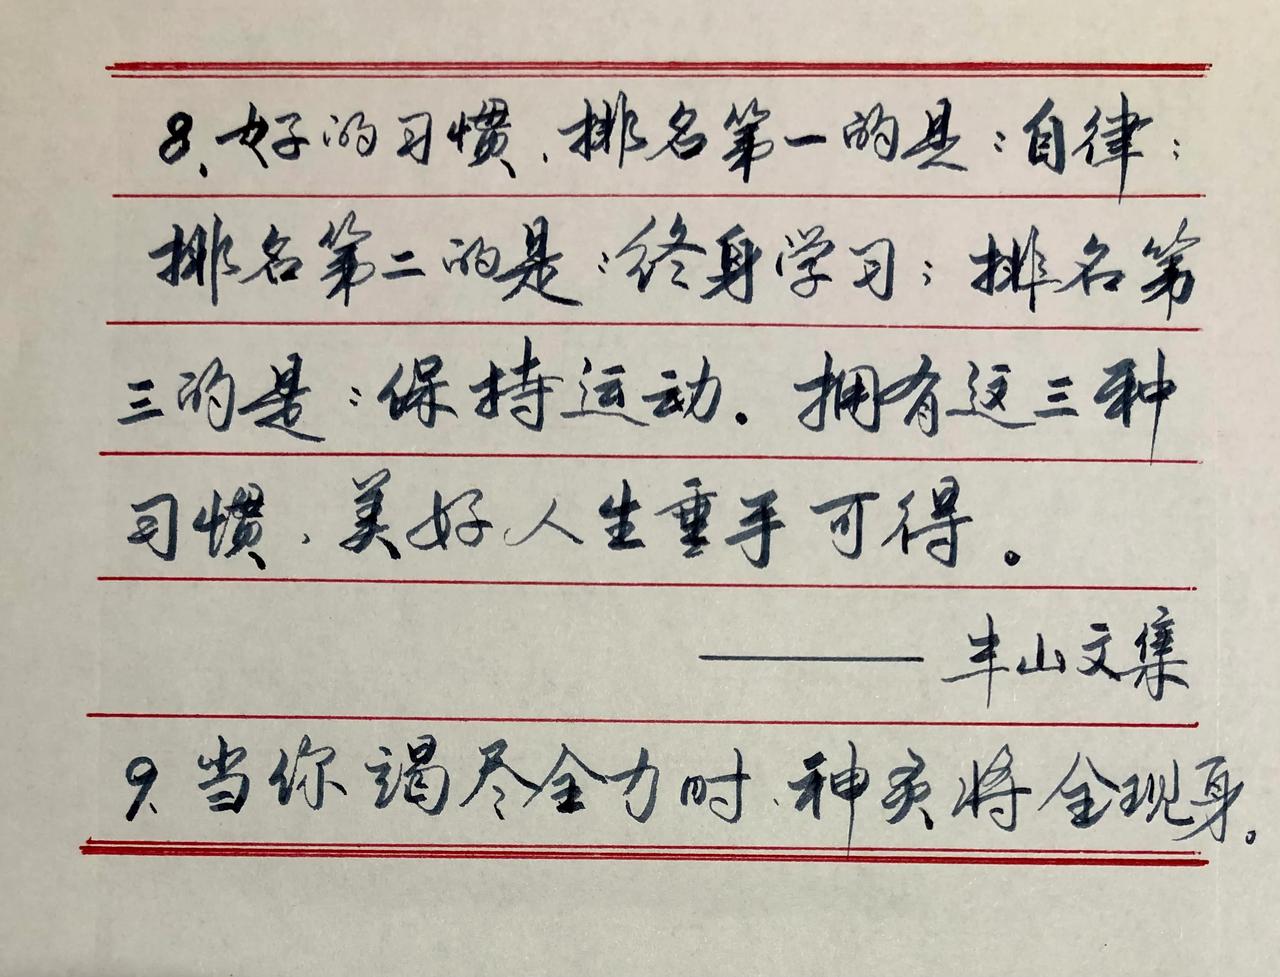 8、好的习惯、排名第一的是：自律；
排名第二的是：终身学习；排名第
三的是：保持运动。拥有这三种
习惯、美好人生垂手可得。
——半山文集
9、当你竭尽全力时、神灵将全现身。